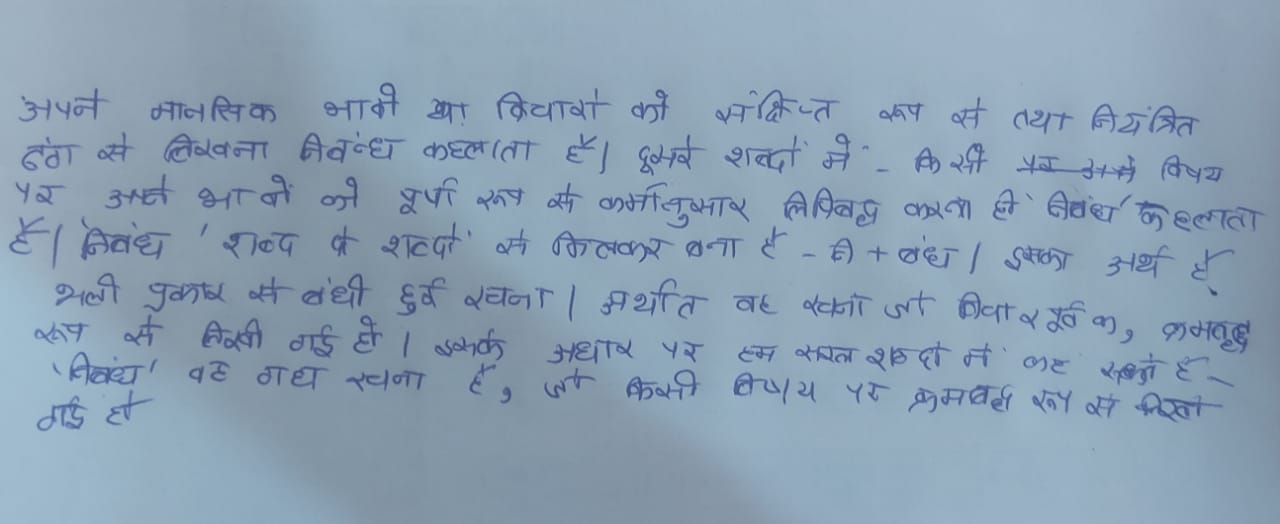 अपने मानसिक भावों या विचारों को संक्षिप्त रूप से तथा नियंत्रित
ढंग से लिखना निबंन्ध कहलाता है। दूसरे शब्दों में - किसी विषय
पर अपने भावों को पूर्ण रूप से कर्मानुसार लिपिबद्ध करना ही 'निबंध' कहलाता
है। 'निबंध' शब्द दो शब्दों से मिलकर बना है - नि + बंध। इसका अर्थ है
भली प्रकार से बंधी हुई रचना। अर्थात वह रचना जो विचारपूर्वक, क्रमबद्ध
रूप से लिखी गई हो। इसके अधार पर हम सरल शब्दों में कह सकते हैं -
'निबंध' वह गद्य रचना है, जो किसी विषय पर क्रमबद्ध रूप से लिखी
गई हो